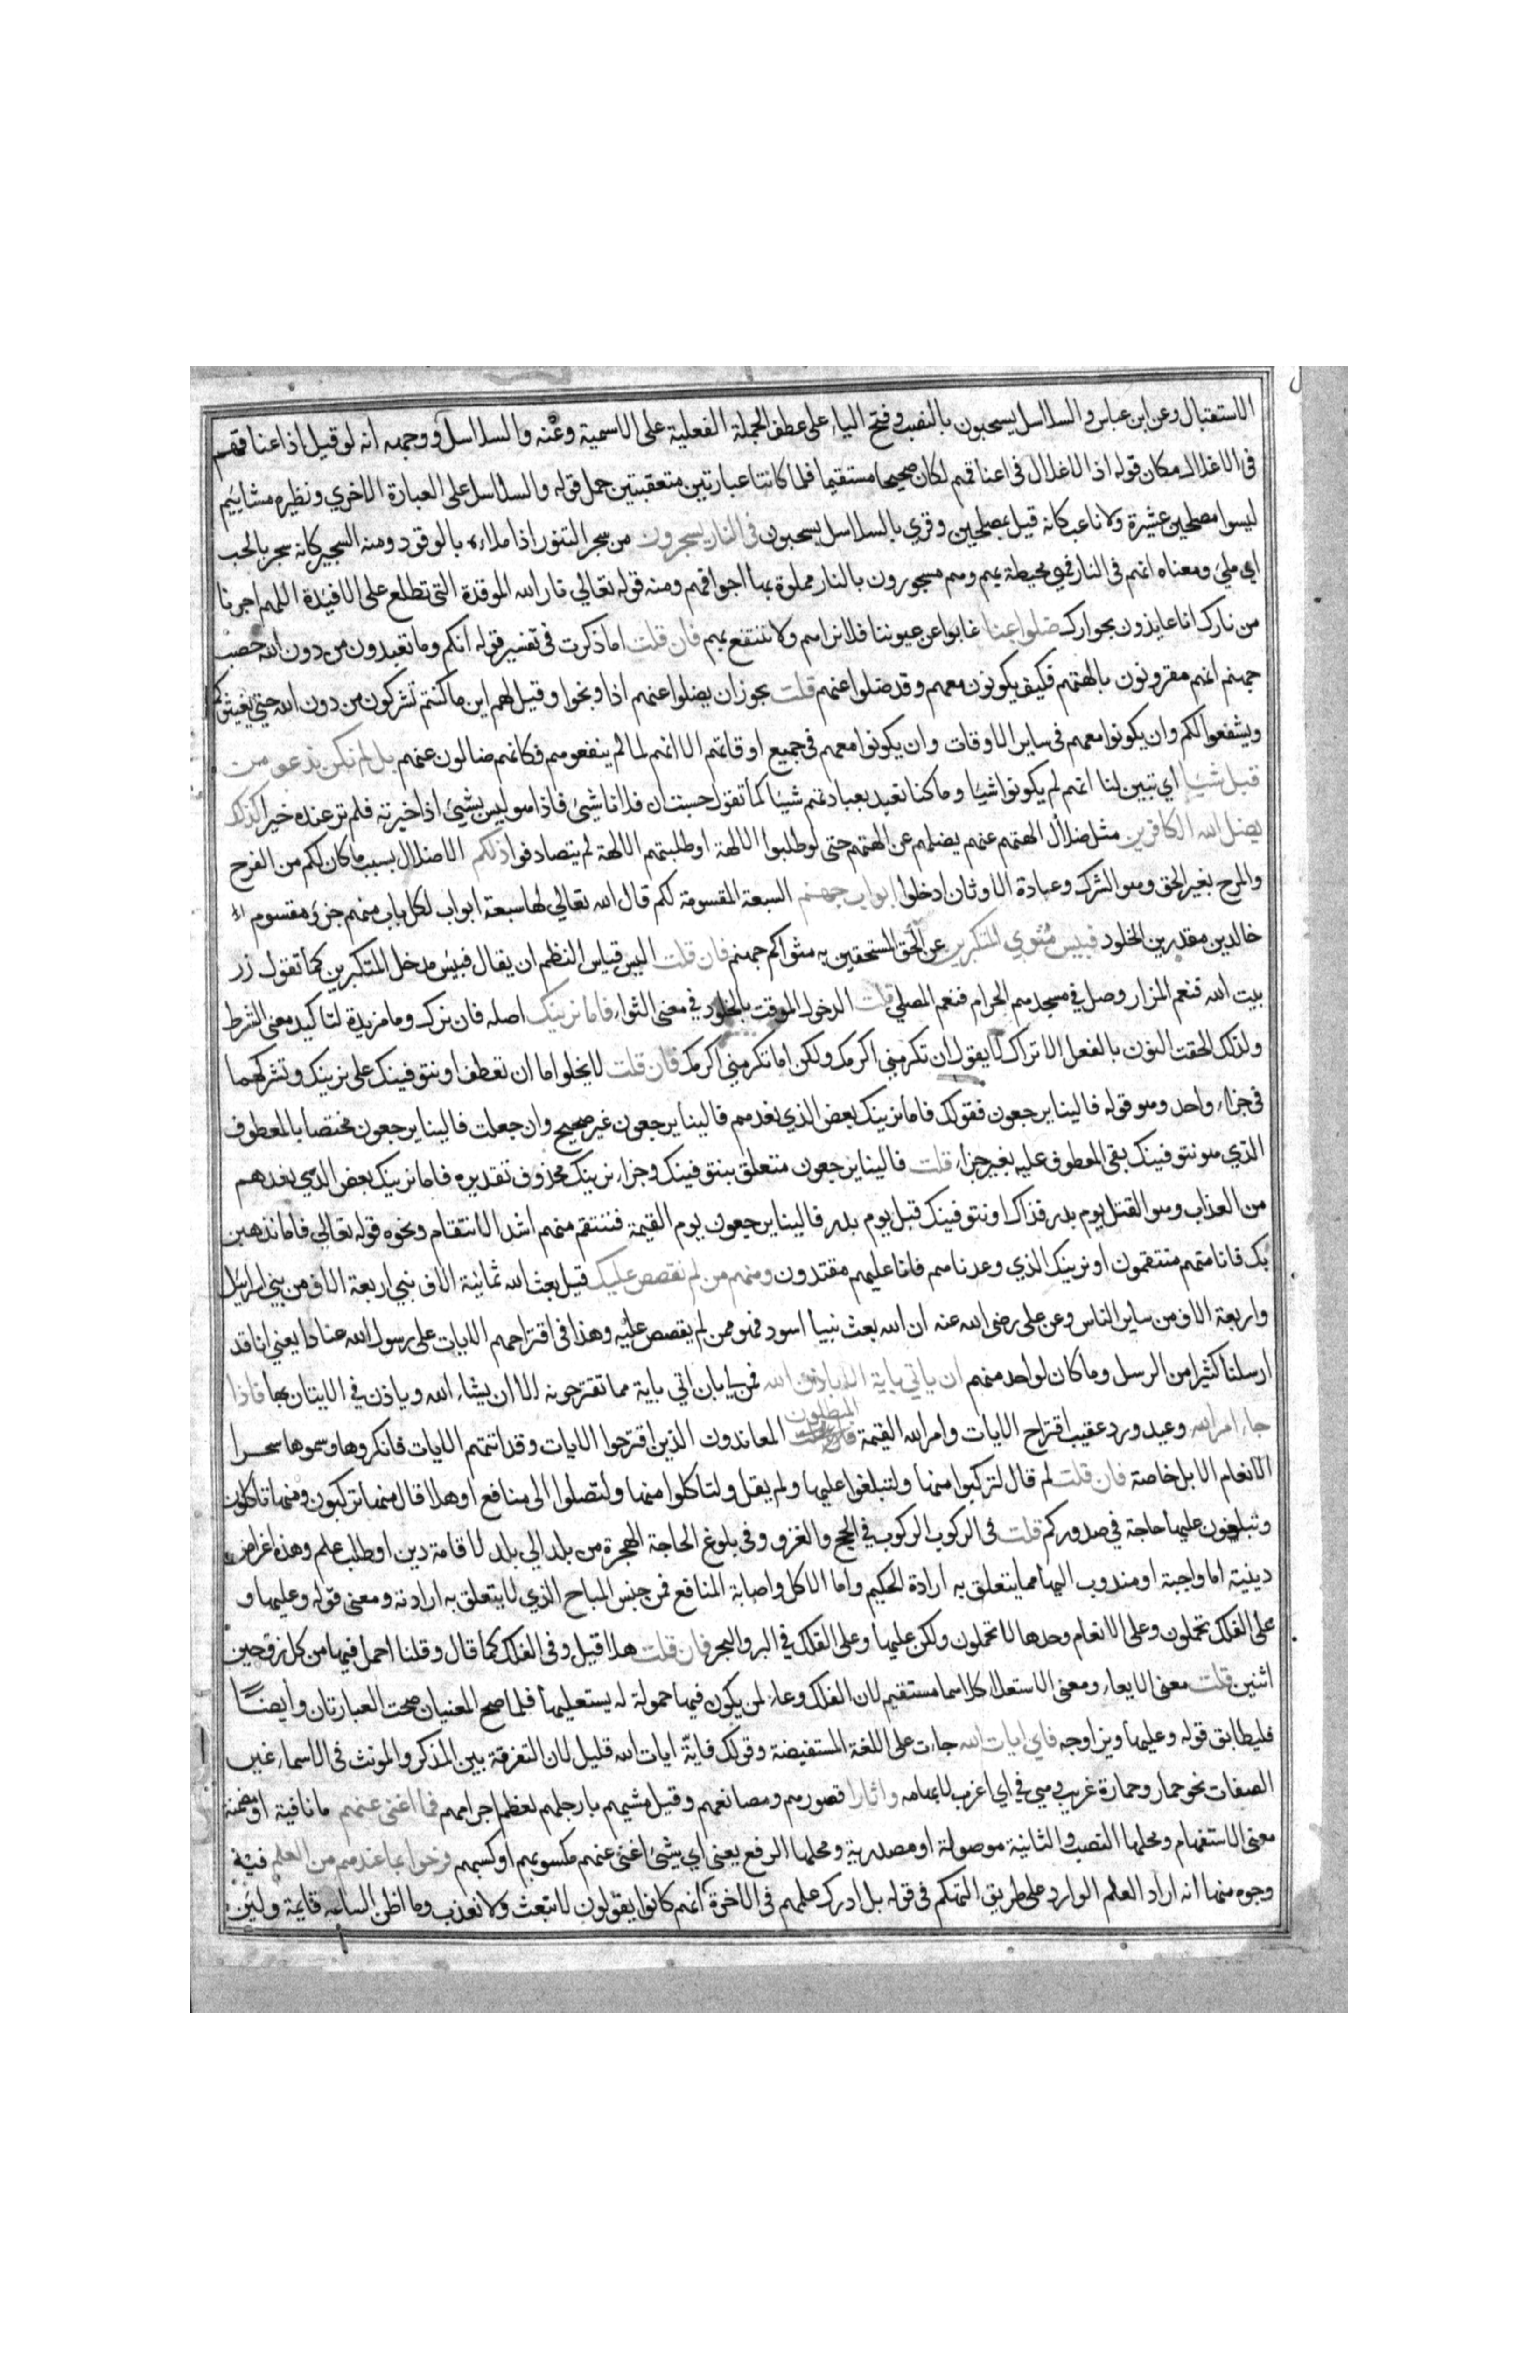 الاستقبال وعن ابن عباس والسلاسل يسحبون بالنصب وفتح الياء على عطف الجملة الفعلية على الاسمية وعنه والسلاسل ووجهه انه لو قيل اذ اعناقهم
في الاغلال مكان قوله اذ الاغلال في اعناقهم لكان صحيحا مستقيما فلما كانتا عبارتين متعقبتين حمل قوله والسلاسل على العبارة الاخري ونظيره مشائيم
ليسوا مصلحين عشيرة ولا ناعب كانه قيل بمصلحين وقري بالسلاسل يسحبون في النار يسجرون من سجر التنور اذا ملاءه بالوقود ومنه السجير كانه سجر بالحب
اي ملئ ومعناه انهم في النار فهي محيطة بهم وهم مسجورون بالنار مملوة بها اجوافهم ومنه قوله تعالي نار الله الموقدة التي تطلع على الافيدة اللهم اجرنا
من نارك انا عايذون بجوارك ضلوا عنا غابوا عن عيوننا فلا نراهم ولا ننتفع بهم فان قلت اما ذكرت في تفسير قوله انكم وما تعبدون من دون الله حصب
جهنم انهم مقرونون بالهتهم فكيف يكونون معهم وقد ضلوا عنهم قلت يجوز ان يضلوا عنهم اذا وبخوا وقيل لهم اين ما كنتم تشركون من دون الله حتي يغيثوكم
ويشفعوا لكم وان يكونوا معهم في ساير الاوقات وان يكونوا معهم في جميع اوقاتهم الا انهم لما لم ينفعوهم فكانهم ضالون عنهم بل لم نكن ندعو من
قبل شيئا اي تبين لنا انهم لم يكونوا شيئا وما كنا نعبد بعبادتهم شيئا كما تقول حسبت ان فلانا شئ فاذا هو ليس بشئ اذا خبرته فلم تر عنده خيرا كذلك
يضل الله الكافرين مثل ضلال الهتهم عنهم يضلهم عن الهتهم حتى لو طلبوا الالهة او طلبتهم الالهة لم يتصادفوا ذلكم الاضلال بسبب ما كان لكم من الفرح
والمرح بغير الحق وهو الشرك وعبادة الاوثان ادخلوا ابواب جهنم السبعة المقسومة لكم قال الله تعالي لها سبعة ابواب لكل باب منهم جزء مقسوم
خالدين مقدرين الخلود فبيس مثوي المتكبرين عن الحق المستخفين به مثواكم جهنم فان قلت اليس قياس النظم ان يقال فبيس مدخل المتكبرين كما تقول زر
بيت الله فنعم المزار وصل في مسجد الحرام فنعم المصلي قلت الدخول الموقت بالخلود في معنى الثواء فاما نرينك اصله فان نرك وما مزيدة لتاكيد معنى الشرط
ولذلك الحقت النون بالفعل الا تراك لا يقول ان تكرمني اكرمك ولكن اما تكرمني اكرمك فان قلت لا يخلوا اما ان تعطف او نتوفينك على نرينك وتشركهما
في جزاء واحد وهو قوله فالينا يرجعون فقولك فاما نرينك بعض الذي نعدهم فالينا يرجعون غير صحيح وان جعلت فالينا يرجعون مختصا بالمعطوف
الذي هو نتوفينك بقى المعطوف عليه بغير جزاء قلت فالينا يرجعون متعلق بنتوفينك وجزاء نرينك محذوف تقديره فاما نرينك بعض الذي نعدهم
من العذاب وهو القتل يوم بدر فذاك او نتوفينك قبل يوم بدر فالينا يرجعون يوم القيمة فننتقم منهم اشد الانتقام ونحوه قوله تعالي فاما نذهبن
بك فانا منهم منتقمون او نرينك الذي وعدناهم فانا عليهم مقتدون ومنهم من لم نقصص عليك قيل بعث الله ثمانية الاف نبي اربعة الاف من بني اسرائيل
واربعة الاف من ساير الناس وعن على رضى الله عنه ان الله بعث نبيا اسود فهو ممن لم يقصص عليه وهذا في اقتراحهم الايات على رسول الله عنادا يعني انا قد
ارسلنا كثيرا من الرسل وما كان لواحد منهم ان ياتي باية الا باذن الله فمن لي بان اتي باية مما تقترحونه الا ان يشاء الله وياذن في الاتيان بها فاذا
جاء امر الله وعيد ورد عقيب اقتراح الايات وامر الله القيمة المبطلون المعاندون الذين اقترحوا الايات وقد اتتهم الايات فانكروها وسموها سحرا
الانعام الابل خاصة فان قلت لم قال لتركبوا منها ولتبلغوا عليها ولم يقل ولتاكلوا منها ولتصلوا الى منافع او هلا قال منها تركبون ومنها تاكلون
وتبلغون عليها حاجة في صدوركم قلت في الركوب الركوب في الحج والغزو وفي بلوغ الحاجة الهجرة من بلد الي بلد لاقامة دين او طلب علم وهذه اغراض
دينية اما واجبة او مندوب اليها مما يتعلق به ارادة الحكيم واما الاكل واصابة المنافع فمن جنس المباح الذي لا يتعلق به ارادته ومعنى قوله وعليها و
على الفلك تحملون وعلى الانعام وحدها لا تحملون ولكن عليها وعلى الفلك في البر والبحر فان قلت هلا قيل وفي الفلك كما قال وقلنا احمل فيها من كل زوجين
اثنين قلت معنى الايعاء ومعنى الاستعلاء كلاهما مستقيم لان الفلك وعاء لمن يكون فيها حمولة له يستعليها فلما صح المعنيان صحت العبارتان وايضا
فليطابق قوله وعليها ويزاوجه فاي ايات الله جاءت على اللغة المستفيضة وقولك فاية ايات الله قليل لان التفرقة بين المذكر والمونث في الاسماء غير
الصفات نحو حمار وحمارة غريب وهي في اي اغرب لابهامه واثارا قصورهم ومصانعهم وقيل مشيهم بارجلهم لعظم اجرامهم فما اغنى عنهم ما نافية او مضمنة
معنى الاستفهام ومحلها النصب والثانية موصولة او مصدرية ومحلها الرفع يعنى اي شئ اغنى عنهم مكسوبهم او كسبهم فرحوا بما عندهم من العلم فيه
وجوه منها انه اراد العلم الوارد على طريق التهكم في قوله بل ادرك علمهم في الاخرة انهم كانوا يقولون لا نبعث ولا نعذب وما اظن الساعة قايمة ولئن